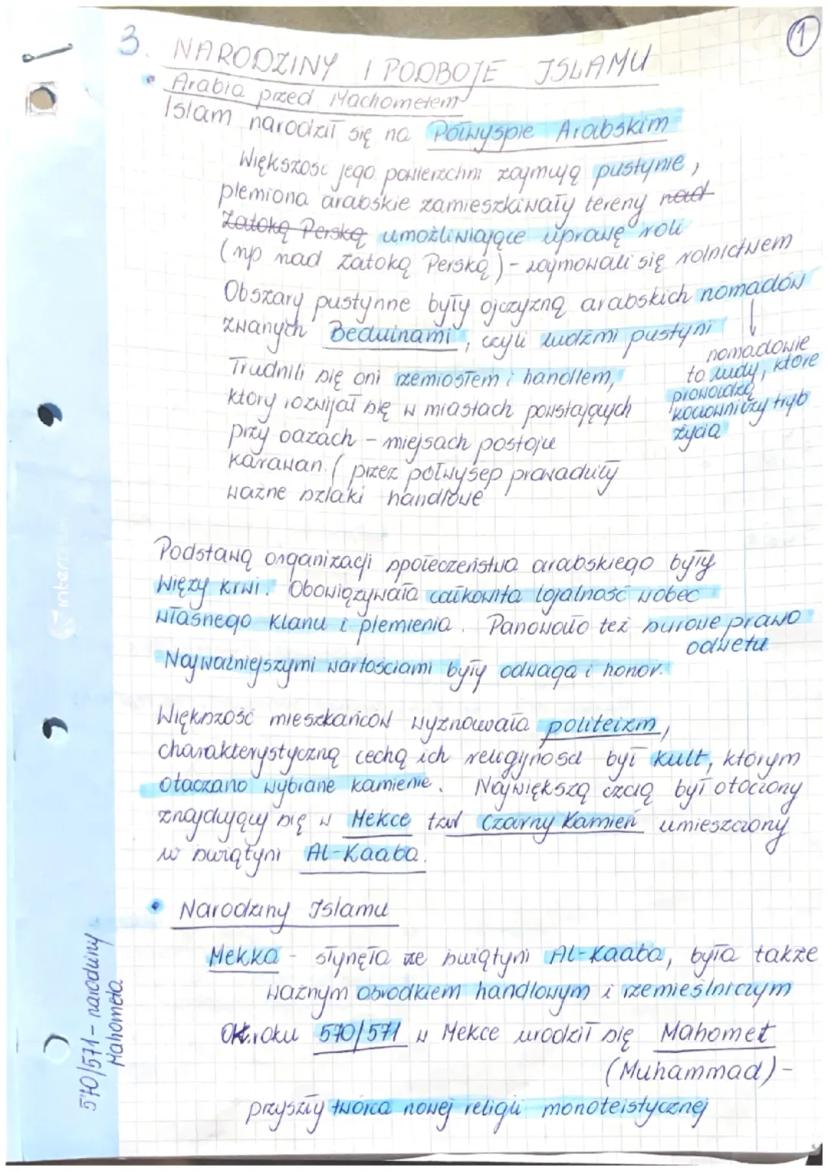 1
3. NARODZINY I PODBOJE ISLAMU
• Arabia przed Machometem
Islam narodził się na Półwyspie Arabskim
Większość jego powierzchni zajmują pustynie,
plemiona arabskie zamieszkiwały tereny nad
Zatoką Perską umożliwiające uprawę roli
(np nad Zatoką Perską) - zajmowali się rolnictwem
Obszary pustynne były ojczyzną arabskich nomadów
zwanych Beduinami, czyli ludźmi pustyni
nomadowie
to ludy, które
prowadzą
koczowniczy tryb
życia
Trudnili się oni rzemiosłem i handlem,
który rozwijał się w miastach powstających
przy oazach - miejsach postoju
karawan. ( przez półwysep prowadziły
ważne szlaki handlowe
Podstawą organizacji społeczeństwa arabskiego były
więzy krwi. Obowiązywała całkowita lojalność wobec
własnego klanu i plemienia. Panowało też surowe prawo
odwetu
Najważniejszymi wartościami były odwaga i honor.
Większość mieszkańców wyznowała politeizm,
charakterystyczną cechą ich religijności był kult, którym
otaczano wybrane kamienie. Największą czcią był otoczony
znajdujący się w Mekce tzw Czarny Kamień umieszczony
w świątyni Al-Kaaba.
• Narodziny Islamu
Mekka - słynęła ze świątyni Al-Kaaba, była także
ważnym ośrodkiem handlowym i rzemieślniczym
Ok. roku 570/571 w Mekce urodził się Mahomet
(Muhammad) -
przyszły twórca nowej religii monoteistycznej
570/571 - narodziny
Mahometa